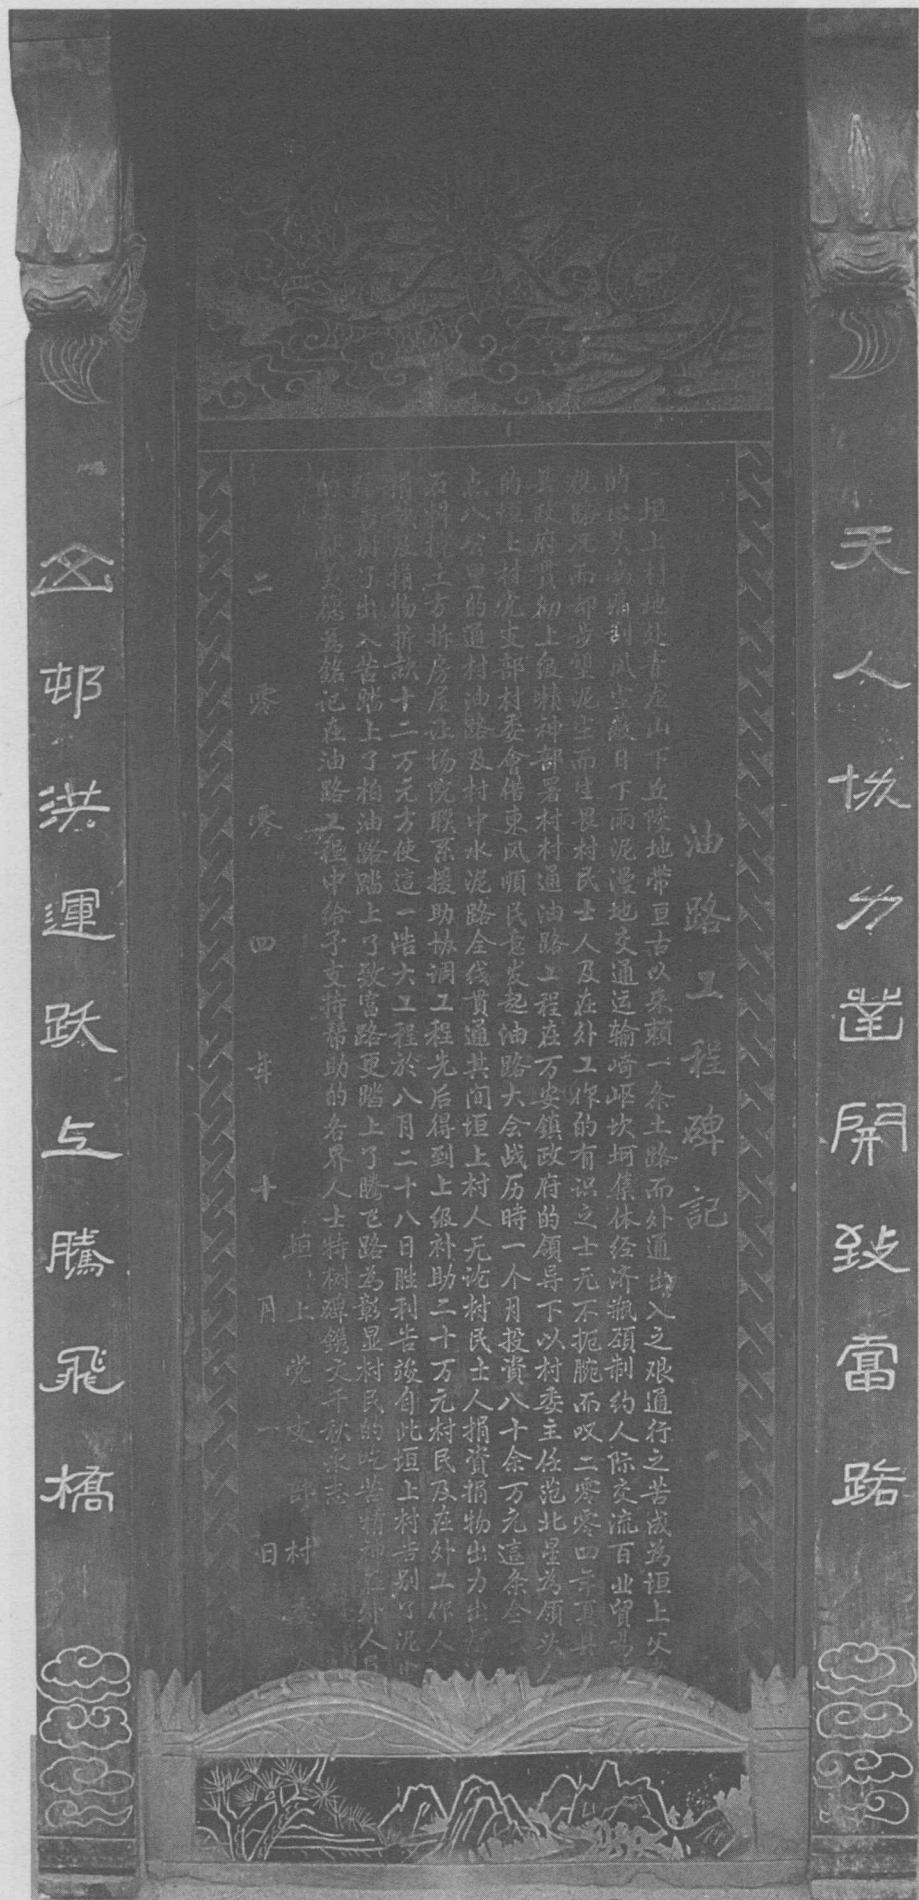 天人协力凿開致富路
油路工程碑記
垣上村地处青龙山下丘陵地带亘古以来赖一条土路而外通出入之艰通行之苦成為垣上父
的心头病痛刮风尘蔽日下雨泥漫地交通运输崎岖坎坷集体经济瓶颈制约人际交流百业貿易
观路况而却步望泥尘而生畏村民士人及在外工作的有识之士无不扼腕而叹二零零四年夏县
县政府贯彻上级精神部署村村通油路工程在万安鎮政府的領导下以村委主任范北星為領头人
的垣上村党支部村委會借東风顺民意发起油路大会战历時一个月投資八十余万元這条全
点八公里的通村油路及村中水泥路全线貫通其间垣上村人无论村民士人捐資捐物出力出
石料挖土方拆房屋让场院联系援助协调工程先后得到上级补助三十万元村民及在外工作人
捐款及捐物折款十二万元方使這一浩大工程於八月二十八日胜利告竣自此垣上村告别了泥
告别了出入苦踏上了柏油路踏上了致富路更踏上了腾飞路為彰显村民的吃苦精神在外人员
的奉献美德為銘记在油路工程中给予支持帮助的各界人士特树碑鐫文千秋永志
垣上党支部村委会
二零零四年十月一日
幽邨洪運跃上騰飛橋